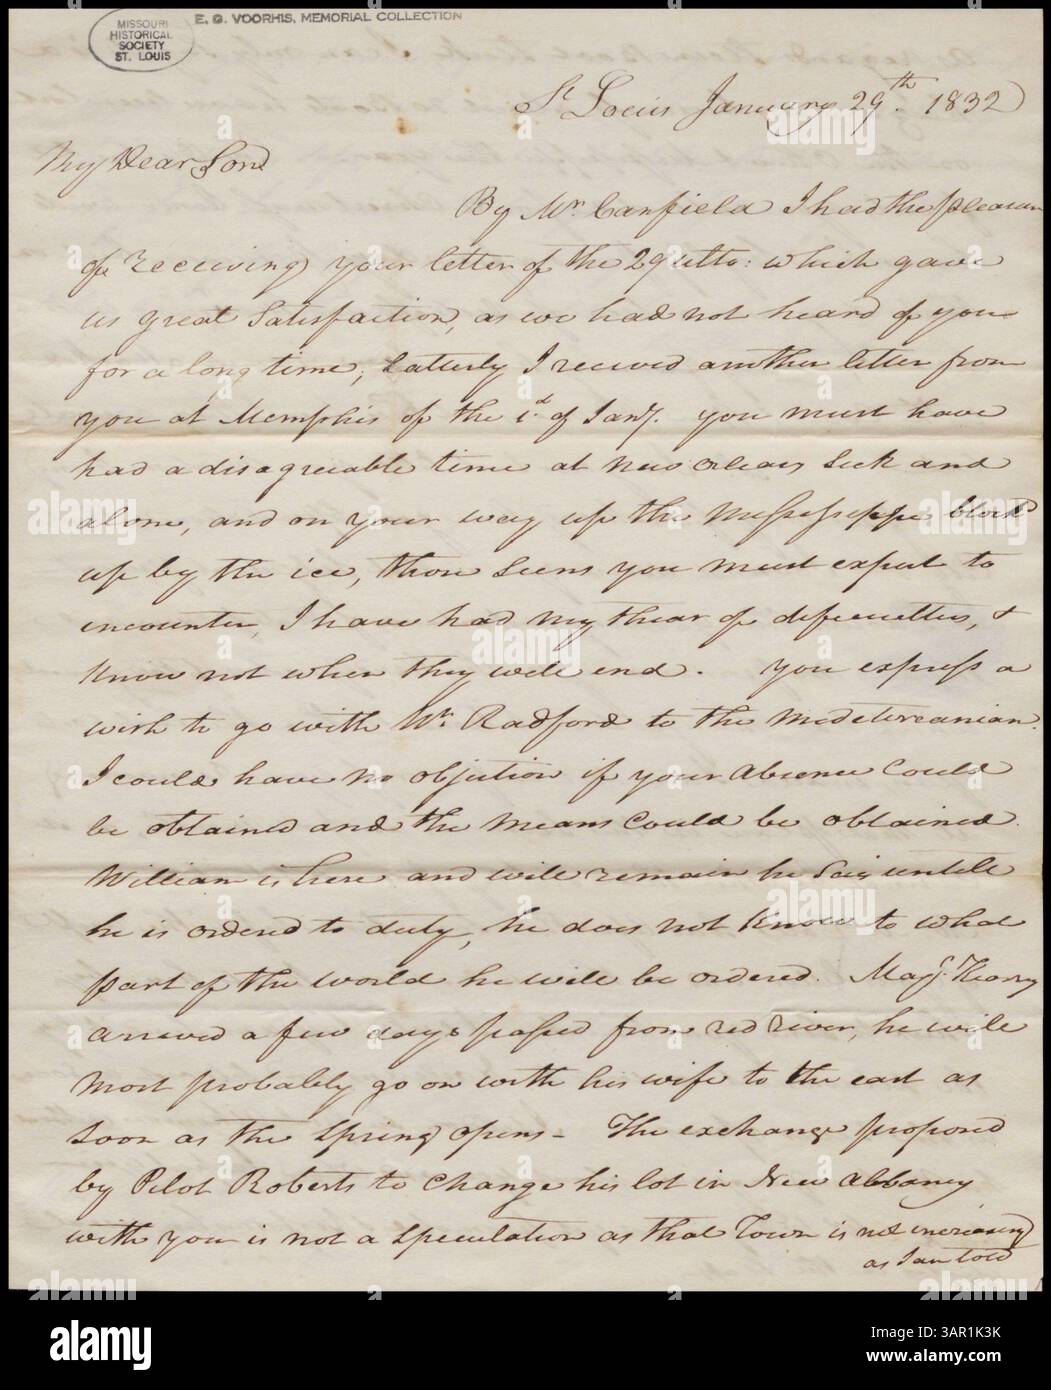 E. G. VOORHIS, MEMORIAL COLLECTION
MISSOURI
HISTORICAL
SOCIETY
ST. LOUIS
St Louis January 29th. 1832
My Dear Son
By Mr. Canfield I had the pleasure
of receiving your letter of the 29 ulto: which gave
us great Satisfaction, as we had not heard of you
for a long time; Latterly I received another letter from
you at Memphis of the 1st of Jany. you must have
had a disagreeable time at New Orleans Sick and
alone, and on your way up the Messessippe blockd
up by the ice, those Seens you must expect to
encounter, I have had my Shear of deffeculties, &
know not when they will end. You express a
wish to go with Wm. Radford to the Medeterranian.
I could have no objection if your Absence Could
be obtained and the Means Could be obtained.
William is here and will remain he Says untill
he is ordered to duty, he does not know to what
part of the world he will be ordered. Majr. Kearny
arrived a few days passed from red river, he will
Most probably go on with his wife to the east as
soon as the Spring opens - The exchange proposed
by Pilot Roberts to Change his lot in New Albany
with you is not a Speculation as that Town is not increasing
as I am told
alamy
3AR1K3K
www.alamy.com